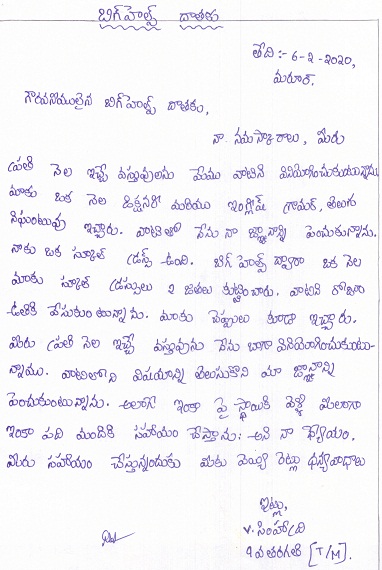 బిగ్‌హెల్ప్ దాతకు
తేది:- 6-2-2020,
మటూర్.
గౌరవనీయులైన బిగ్‌హెల్ప్ దాతకు,
నా నమస్కారాలు, మీరు
ప్రతి నెల ఇచ్చే వస్తువులను మేము వాటిని వినియోగించుకుంటున్నాము
మాకు ఒక నెల డిక్షనరీ మరియు ఇంగ్లీష్ గ్రామర్, తెలుగు
నిఘంటువు ఇచ్చారు. వాటితో నేను నా జ్ఞానాన్ని పెంచుకున్నాను.
నాకు ఒక స్కూల్ డ్రస్ ఉంది. బిగ్ హెల్ప్ ద్వారా ఒక నెల
మాకు స్కూల్ డ్రస్సులు 2 జతలు కుట్టించారు. వాటిని రోజూ
ఉతికి వేసుకుంటున్నాను. మాకు చెప్పులు కూడా ఇచ్చారు.
మీరు ప్రతి నెల ఇచ్చే వస్తువును నేను బాగా వినియోగించుకుంటు-
న్నాము. వాటిలోని విషయాన్ని తెలుసుకొని మా జ్ఞానాన్ని
పెంచుకుంటున్నాను. అలాగే ఇంకా పై స్థాయికి వెళ్లి మీలాగా
ఇంకా పది మందికి సహాయం చేస్తాను: అని నా ధ్యేయం.
మీరు సహాయం చేస్తున్నందుకు మీకు వెయ్యి రెట్లు ధన్యవాదాలు
ఇట్లు,
v. సింహాద్రి
9వ తరగతి [T/M].